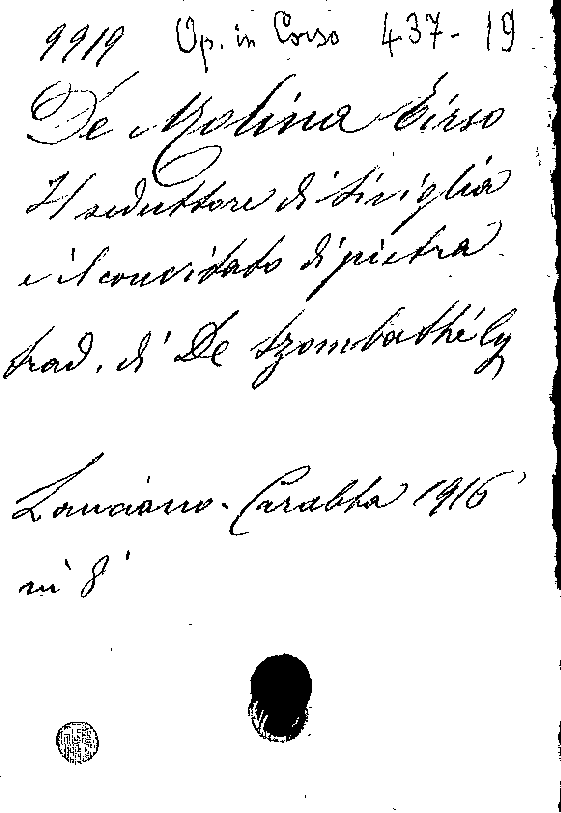 9919 Op. in Corso 437-19
De Molina Tirso
Il seduttore di Siviglia
e il convitato di pietra
trad. di De Szombathély
Lanciano. Carabba 1916
in 8°